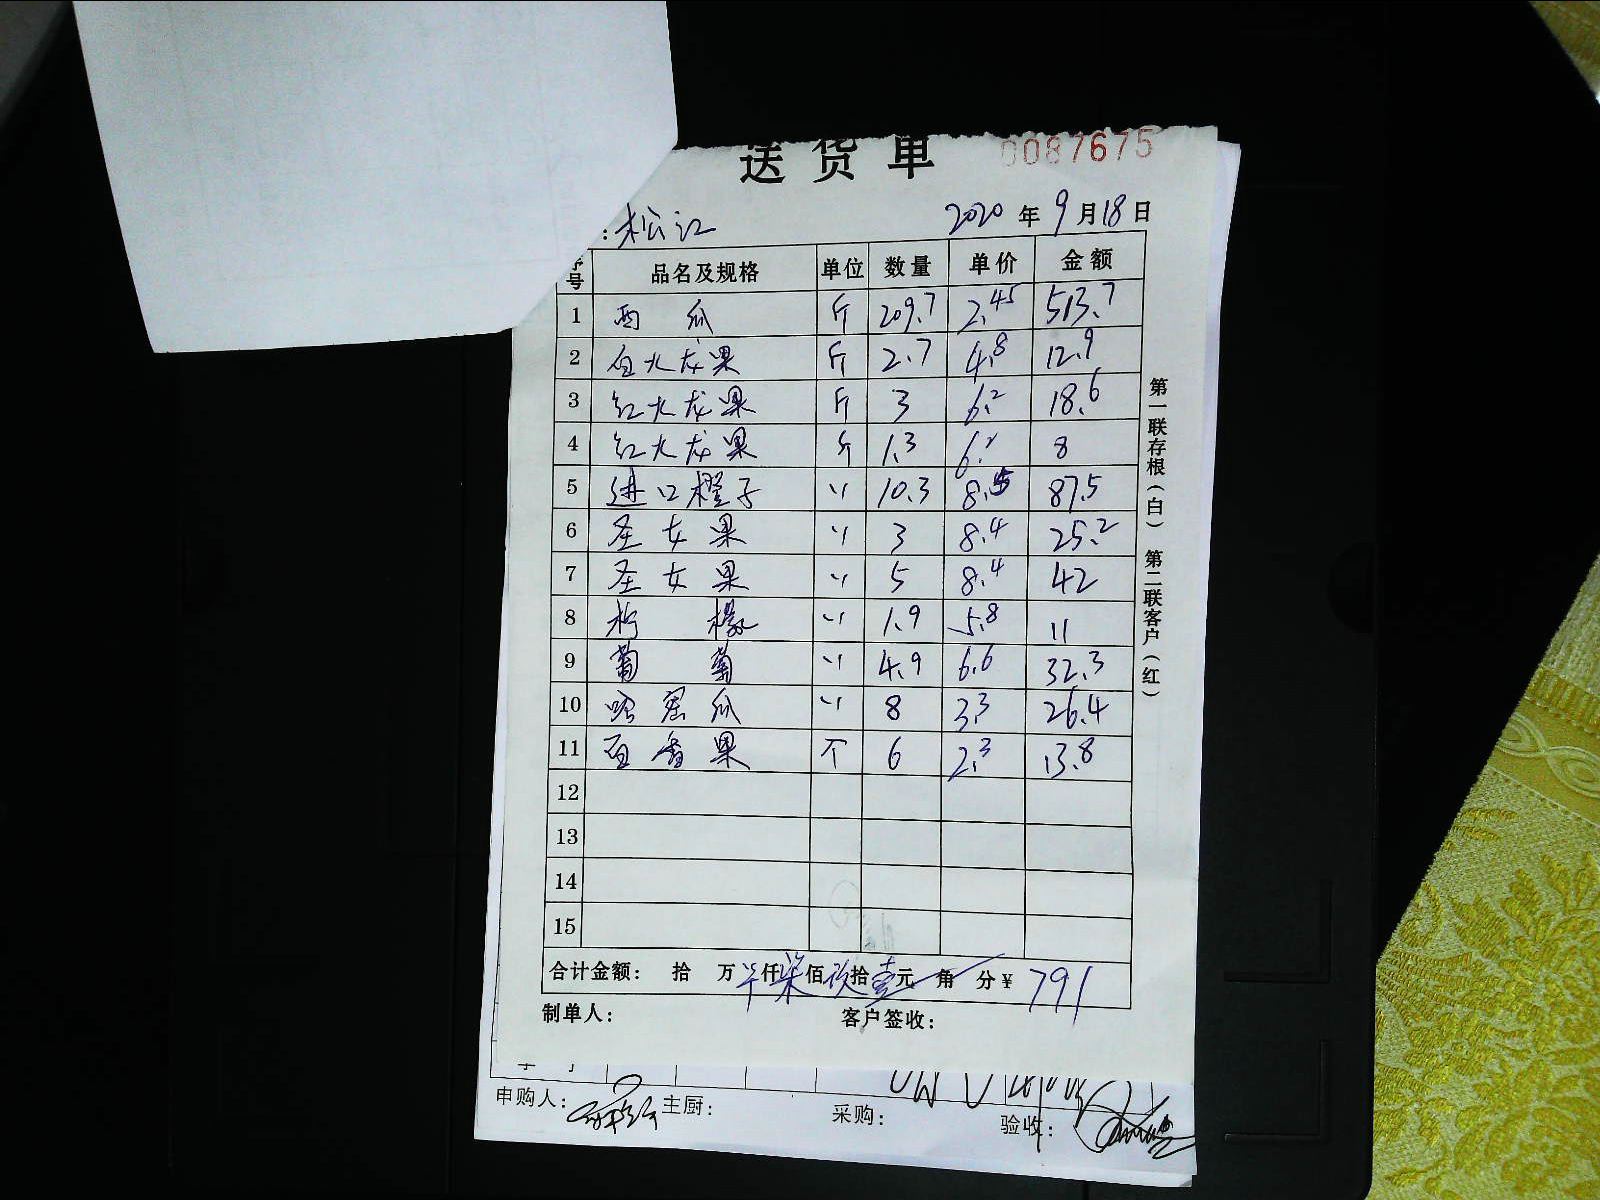 送货单 0087675
:松江 2020年9月18日
序号 品名及规格 单位 数量 单价 金额
1 西瓜 斤 209.7 2.45 513.7
2 白火龙果 斤 2.7 4.8 12.9
3 红火龙果 斤 3 6.2 18.6
4 红火龙果 斤 1.3 6.2 8
5 进口橙子 〃 10.3 8.5 87.5
6 圣女果 〃 3 8.4 25.2
7 圣女果 〃 5 8.4 42
8 柠檬 〃 1.9 5.8 11
9 葡萄 〃 4.9 6.6 32.3
10 哈密瓜 〃 8 3.3 26.4
11 百香果 个 6 2.3 13.8
12
13
14
15
合计金额: 拾 万 仟柒佰玖拾壹元 角 分¥ 791
制单人: 客户签收:
第一联存根(白) 第二联客户(红)
申购人: 主厨: 采购: 验收: